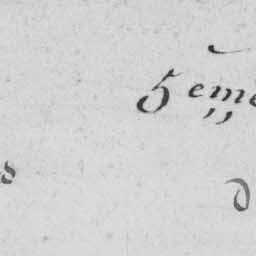 5eme
s
d